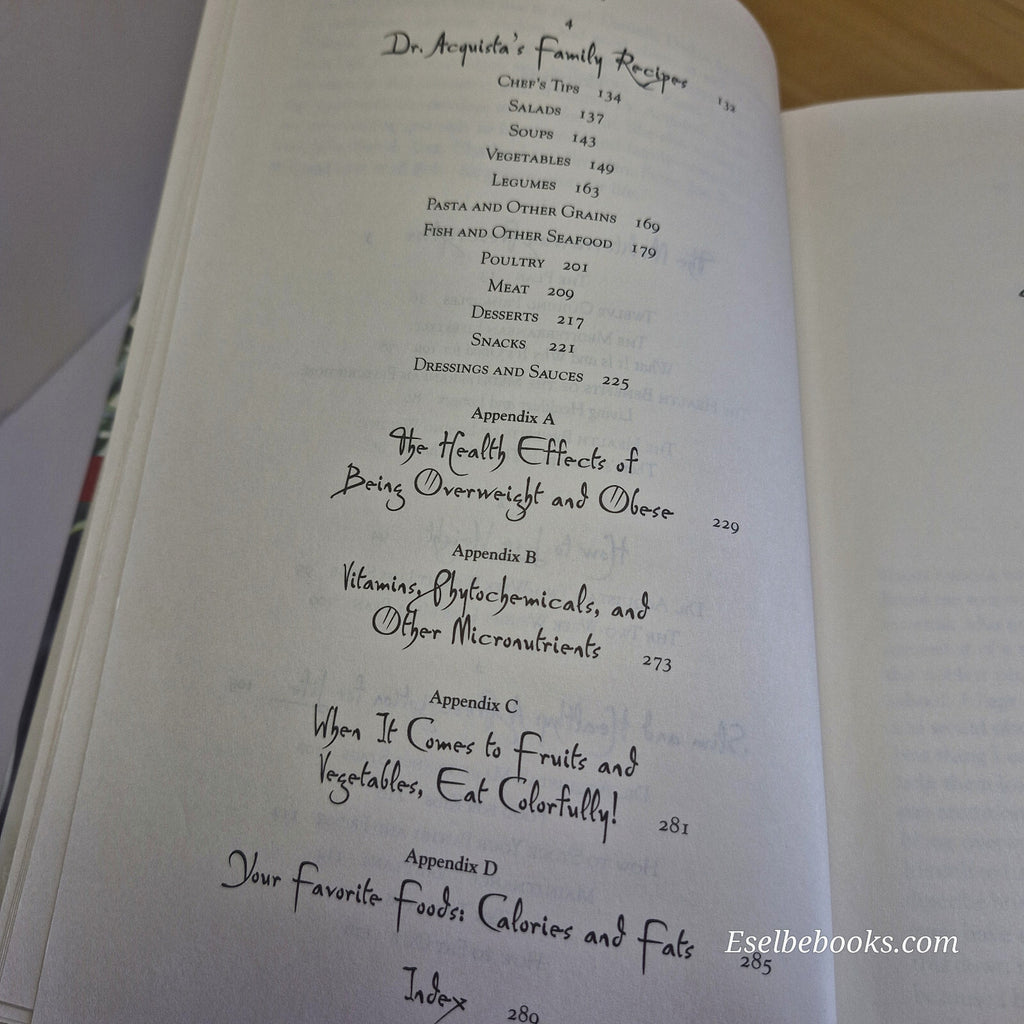 4
Dr. Acquista's Family Recipes 132
Chef's Tips 134
Salads 137
Soups 143
Vegetables 149
Legumes 163
Pasta and Other Grains 169
Fish and Other Seafood 179
Poultry 201
Meat 209
Desserts 217
Snacks 221
Dressings and Sauces 225
Appendix A
The Health Effects of
Being Overweight and Obese 229
Appendix B
Vitamins, Phytochemicals, and
Other Micronutrients 273
Appendix C
When It Comes to Fruits and
Vegetables, Eat Colorfully! 281
Appendix D
Your Favorite Foods: Calories and Fats 285
Index 289
Eselbebooks.com